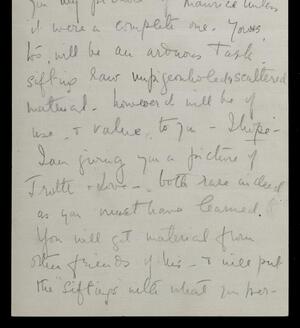 you my picture of Maurice unless
it were a complete one. Yours,
too, will be an arduous task
sifting raw unpigeonholed, scattered
material. however it will be of
use & value to you - I hope -
I am giving you a picture of
Truth & Love - both rare indeed
as you must have learned.
You will get material from
other friends of his - & will put
the "siftings" with what you per-